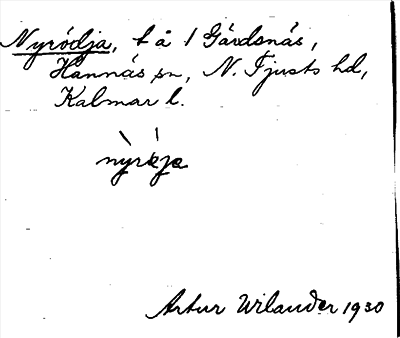 Nyródja, t å 1 Gårdsnäs,
Hannäs sn, N. Tjusts hd,
Kalmar l.
Artur Wilander 1930